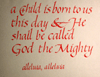 a Child is born to us
this day & He
shall be called
God the Mighty
alleluia, alleluia